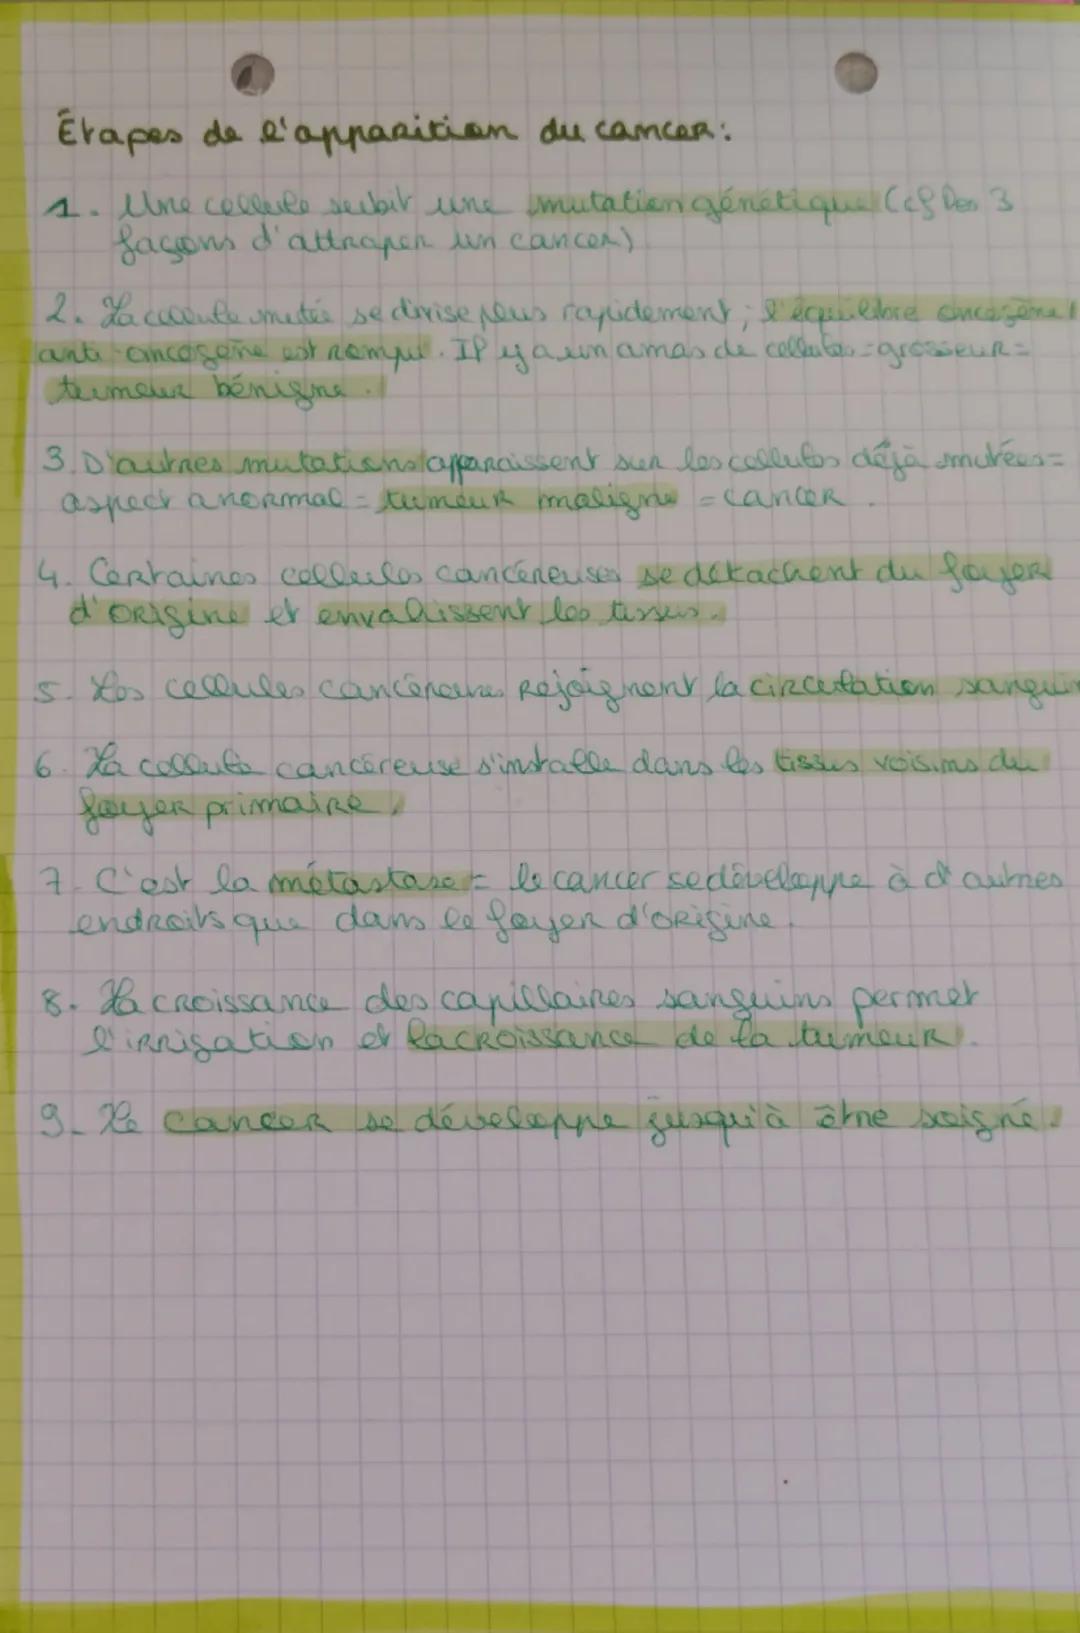 Étapes de l'apparition du cancer :
1. Une cellule subit une mutation génétique (cf Des 3
façons d'attraper un cancer)
2. La cellule mutée se divise plus rapidement ; l'équilibre oncogène/
anti-oncogène est rompu. Il y a un amas de cellules = grosseur =
tumeur bénigne.
3. D'autres mutations apparaissent sur les cellules déjà mutées =
aspect anormal = tumeur maligne = cancer.
4. Certaines cellules cancéreuses se détachent du foyer
d'origine et envahissent les tissus.
5. Les cellules cancéreuses rejoignent la circulation sanguin
6. La cellule cancéreuse s'installe dans les tissus voisins du
foyer primaire.
7. C'est la métastase = le cancer se développe à d'autres
endroits que dans le foyer d'origine.
8. La croissance des capillaires sanguins permet
l'irrigation et la croissance de la tumeur.
9. Le cancer se développe jusqu'à être soigné.